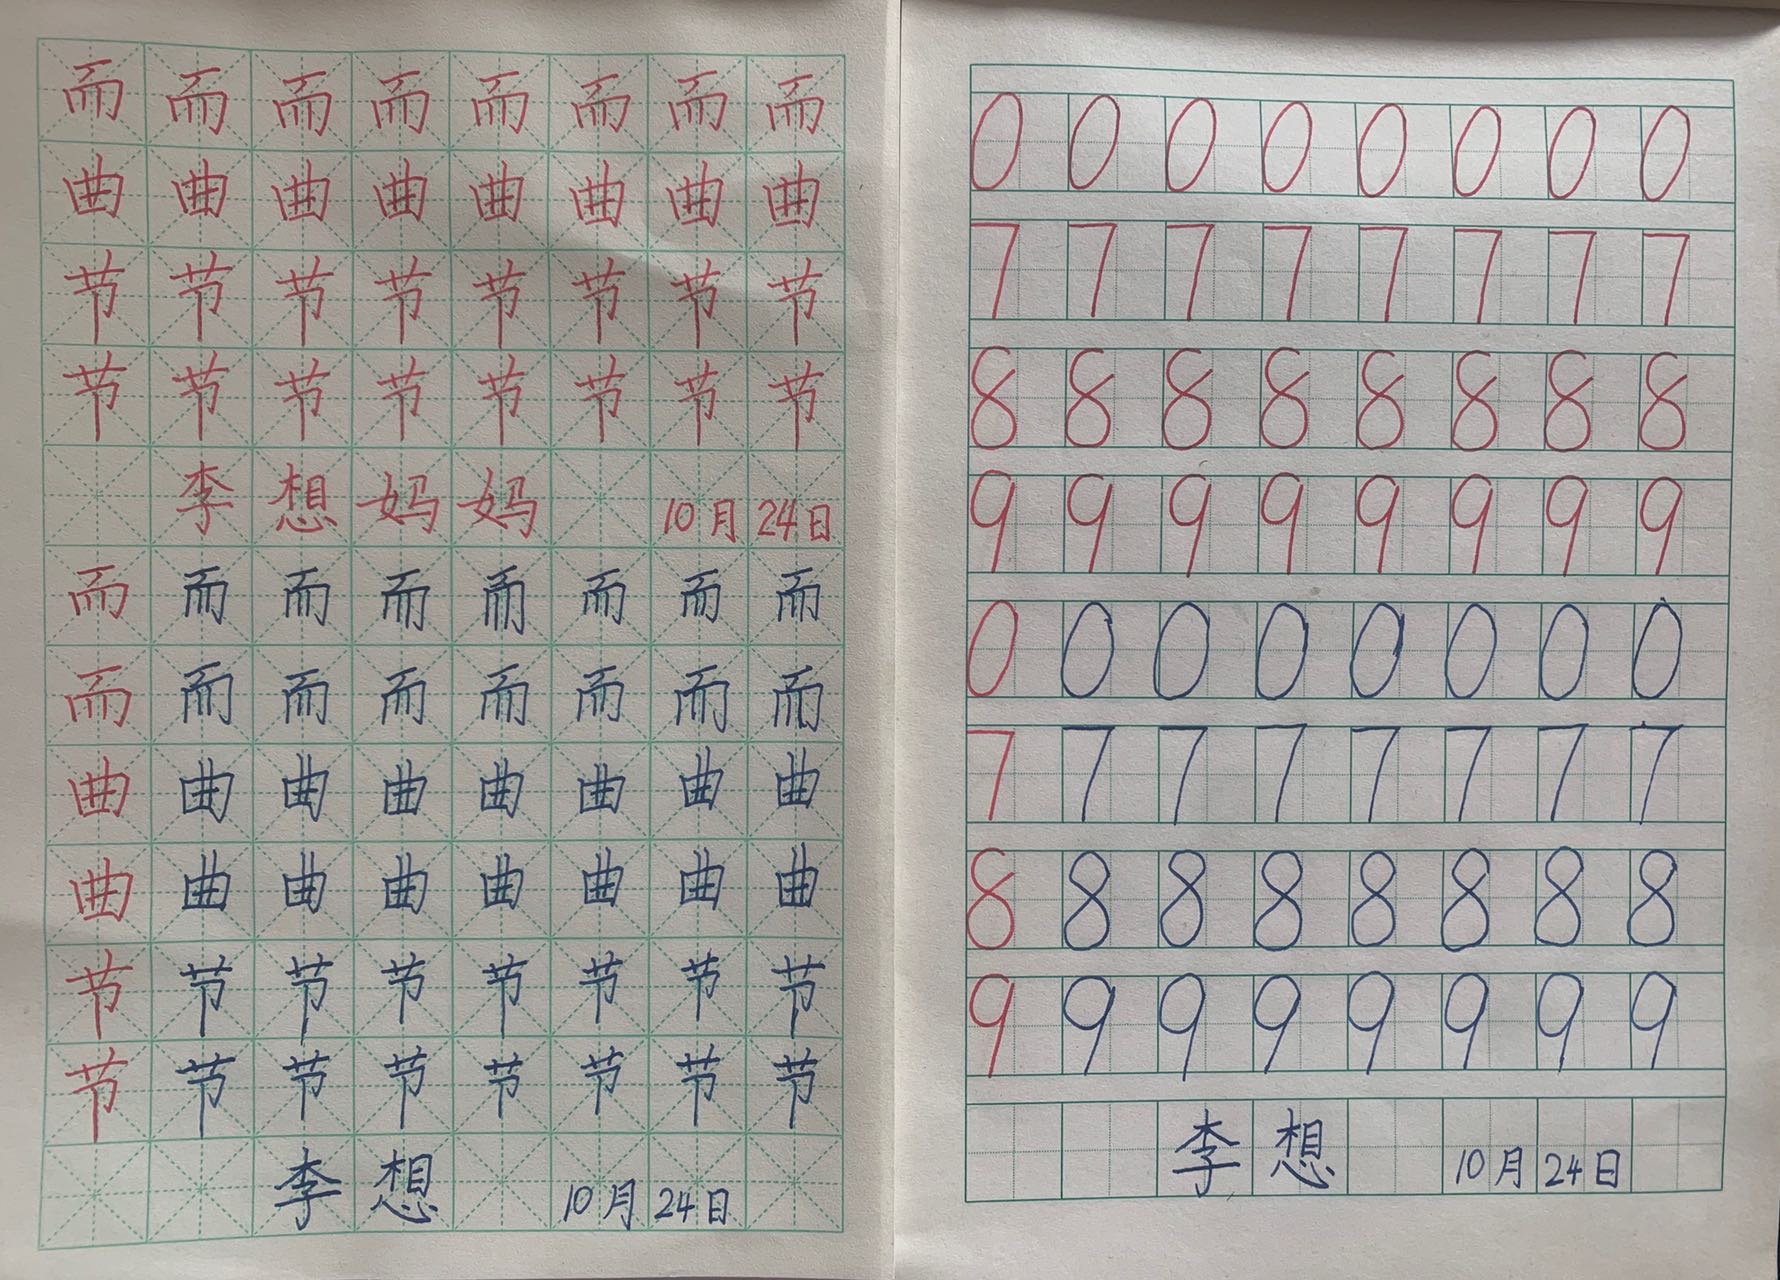 而 而 而 而 而 而 而 而
曲 曲 曲 曲 曲 曲 曲 曲
节 节 节 节 节 节 节 节
节 节 节 节 节 节 节 节
李 想 妈 妈 10月 24日
而 而 而 而 而 而 而 而
而 而 而 而 而 而 而 而
曲 曲 曲 曲 曲 曲 曲 曲
曲 曲 曲 曲 曲 曲 曲 曲
节 节 节 节 节 节 节 节
节 节 节 节 节 节 节 节
李 想 10月 24日
0 0 0 0 0 0 0 0
7 7 7 7 7 7 7 7
8 8 8 8 8 8 8 8
9 9 9 9 9 9 9 9
0 0 0 0 0 0 0 0
7 7 7 7 7 7 7 7
8 8 8 8 8 8 8 8
9 9 9 9 9 9 9 9
李 想 10月 24日